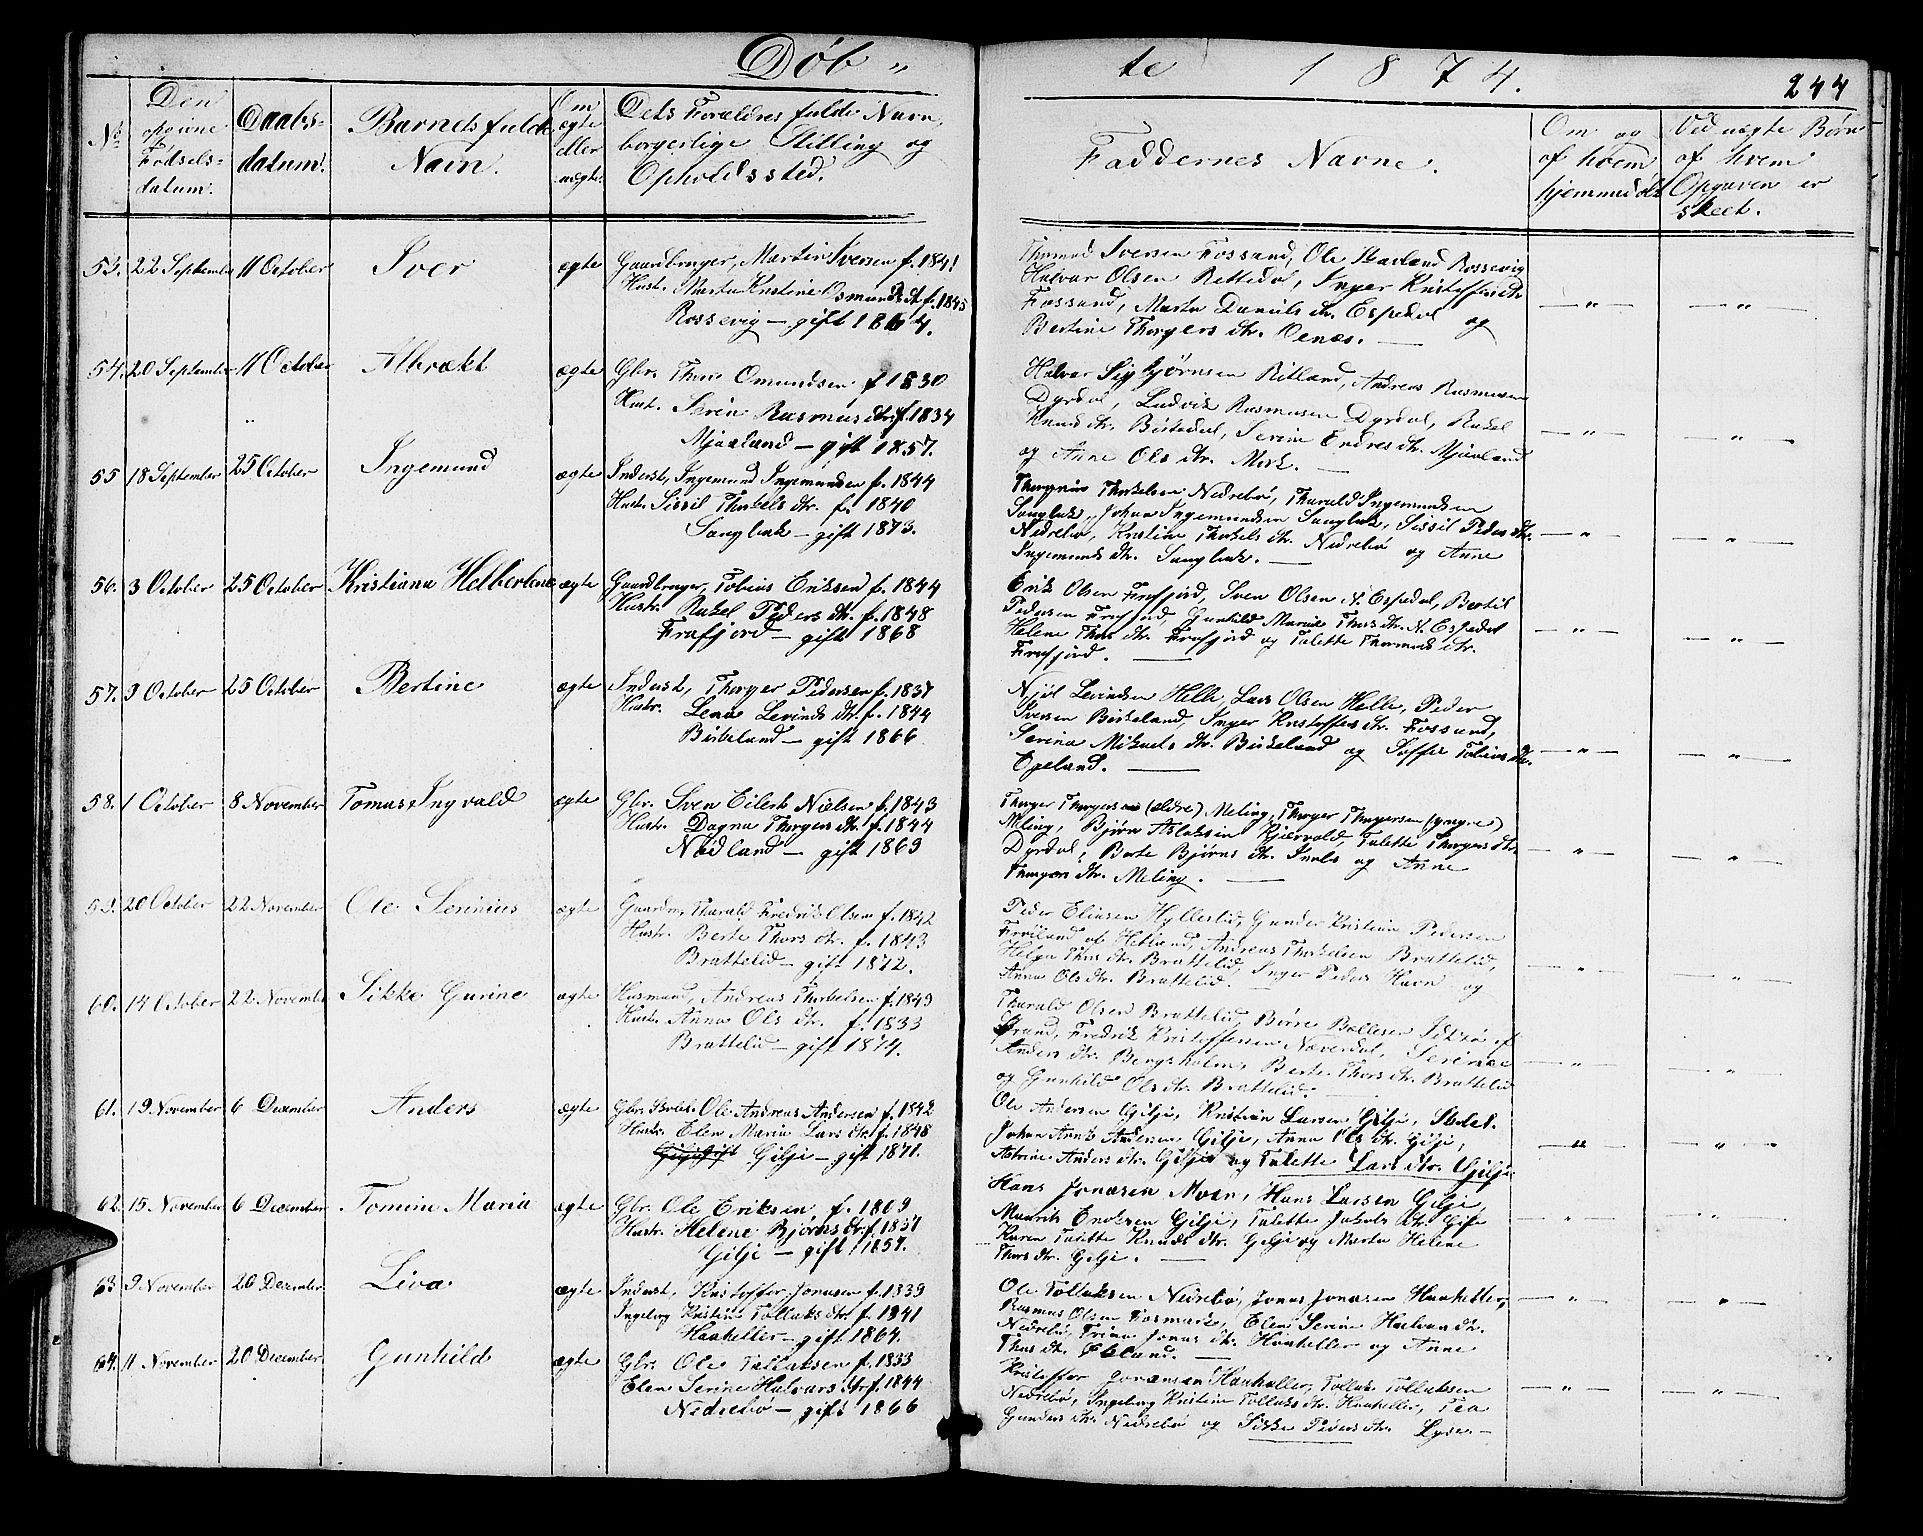 Døb„
te 1874.
244
No
Den opgivne Fødselsdatum.
Daabsdatum.
Barnets fulde Navn.
Om ægte eller uægte.
Dets Forældres fulde Navn, borgerlige Stilling og Opholdssted.
Faddernes Navne.
Om og af hvem hjemmedøbt
Ved uægte Børn af hvem Opgaven er skeet.
53. 22 September 11 October Iver ægte Gaardbruger, Martin Iversen f. 1841
Hust. Marta Kristine Osmundsdt. f. 1845
Rossevig — gift 1864.
Thormod Iversen Fossand, Ole Haaland Rossevig
Halvar Olsen Rettedal, Inger Kristoffersdtr.
Fossand, Marta Daniels dtr. Espedal og
Bertine Thorgers dtr. Oenæs. —
— " — — " —
54. 20 September 11 October Albrækt ægte Gbr. Thore Omundsen f 1830
Hust. Serin Rasmusdtr. f. 1834
Mjaaland — gift 1857.
Halvar Sigbjørnsen Ritland, Andreas Rasmusen
Dyrdal, Ludvik Rasmusen Dyrdal, Rakel
Knuds dtr. Birkedal, Serine Endres dtr. Mjaaland
og Anne Ols dtr. Mork. —
— " — — " —
55 18 September 25 October Ingemund ægte Inderst, Ingemund Ingemundsen f. 1844
Hustr. Sissil Thorkels dtr. f. 1840
Sangluk — gift 1873.
Thorgrius Thorkelsen Nedrebø, Tharald Ingemundsen
Sangluk, Johan Ingemundsen Sangluk, Sissil Peders dtr.
Nedrebø, Kristine Thorkels dtr. Nedrebø og Anne
Ingemunds dtr. Sangluk. —
— " — — " —
56. 3 October 25 October Kristiana Helbertine ægte Gaardbruger, Tobias Eriksen f. 1844
Hustr. Rakel Peders dtr. f. 1848
Frafjord — gift 1868
Erik Olsen Frafjord, Sven Olsen N. Espedal, Bertil
Pedersen Frafjord, Gunhild Marie Thors dtr. N. Espedal
Helene Thors dtr. Frafjord og Talette Thormods dtr.
Frafjord. —
— " — — " —
57. 9 October 25 October Bertine ægte Inderst, Thorger Pedersen f. 1837
Hustr. Lene Levinds dtr. f. 1844
Birkeland — gift 1866
Njøl Levindsen Helle, Lars Olsen Helle, Peder
Iversen Birkeland, Inger Kristoffers dtr. Fossand,
Serina Mikaels dtr. Birkeland og Soffie Tobias dtr.
Egeland. —
— " — — " —
58. 1 October 8 November Tomas Ingvald ægte Gbr. Sven Eilert Nielsen f. 1843
Hustr. Dagna Thorgers dtr. f. 1844
Nødland — gift 1869
Thorger Thorgersen (ældre) Meling, Thorger Thorgersen (yngre)
Meling, Bjørn Aslaksen Kjærvald, Talette Thorgers dtr.
Dyrdal, Berte Bjørns dtr. og Anne
Thorgers dtr. Meling. —
— " — — " —
59. 20 October 22 November Ole Serinius ægte Gaardm. Tharald Fredrik Olsen f. 1842
Hustr. Berte Thors dtr. f. 1843
Brattelid — gift 1872.
Peder Eliasen Hyllestad, Gunder Kristian Pedersen
Frøiland af Hetland, Andreas Thorkelsen Brattelid,
Helga Thors dtr. Brattelid, Inger Peders Havn og
Anna Ols dtr. Brattelid. —
— " — — " —
60. 14 October 22 November Sikke Gurine ægte Husmand, Andreas Thorkelsen f. 1849
Hustr. Anna Ols dtr. f. 1833
Brattelid — gift 1874.
Tharald Olsen Brattelid, Børre Bollesen Idsøe af
Strand, Fredrik Kristoffersen Naverdal, Serine
Anders dtr. Bergsholm, Berte Thors dtr. Brattelid
og Gunhild Ols dtr. Brattelid. —
— " — — " —
61. 19 November 6 December Anders ægte Gbr. Ole Andreas Andersen f. 1842
Hustr. Elen Maria Lars dtr. f. 1848
Gilje — gift 1871.
Ole Andersen Gilje, Kristian Larsen Gilje,
Johan Andersen Gilje, Anna Ols dtr. Gilje,
Andersdtr. Gilje og Talette Lars dtr. Gilje
— " — — " —
62. 15 November 6 December Tomine Maria ægte Gbr. Ole Eriksen f. 1809
Hustr. Helene Bjørnsdtr. f. 1837
Gilje — gift 1857.
Hans Jonasen Moen, Hans Larsen Gilje,
Maurits Enoksen Gilje, Talette Jakobs dtr. Gilje
Karen Talette Knuds dtr. Gilje og Marta Helene
Thors dtr. Gilje. —
— " — — " —
63 9 November 26 December Liva ægte Inderst, Kristoffer Jonasen f. 1839
Ingeborg Kristine Tollaksdtr. f. 1841
Haaheller — gift 1864.
Ole Tollaksen Nedrebø, Jonas Jonasen Haaheller,
Rasmus Olsen Fosmark, Elen Serine Halvardtr.
Nedrebø, Trine Jonas dtr. Haaheller og Anne
Thors dtr. Østland. —
— " — — " —
64. 11 November 20 December Gunhild ægte Gbr. Ole Tollaksen f. 1833
Elen Serine Halvarsdtr. f. 1844
Nedrebø — gift 1866
Kristoffer Jonasen Haaheller, Tollak Tollaksen
Nedrebø, Ingeborg Kristine Tollaksdtr. Haaheller, Tea
Gunders dtr. Nedrebø og Sikke Pedersdtr. Lyse —
— " — — " —